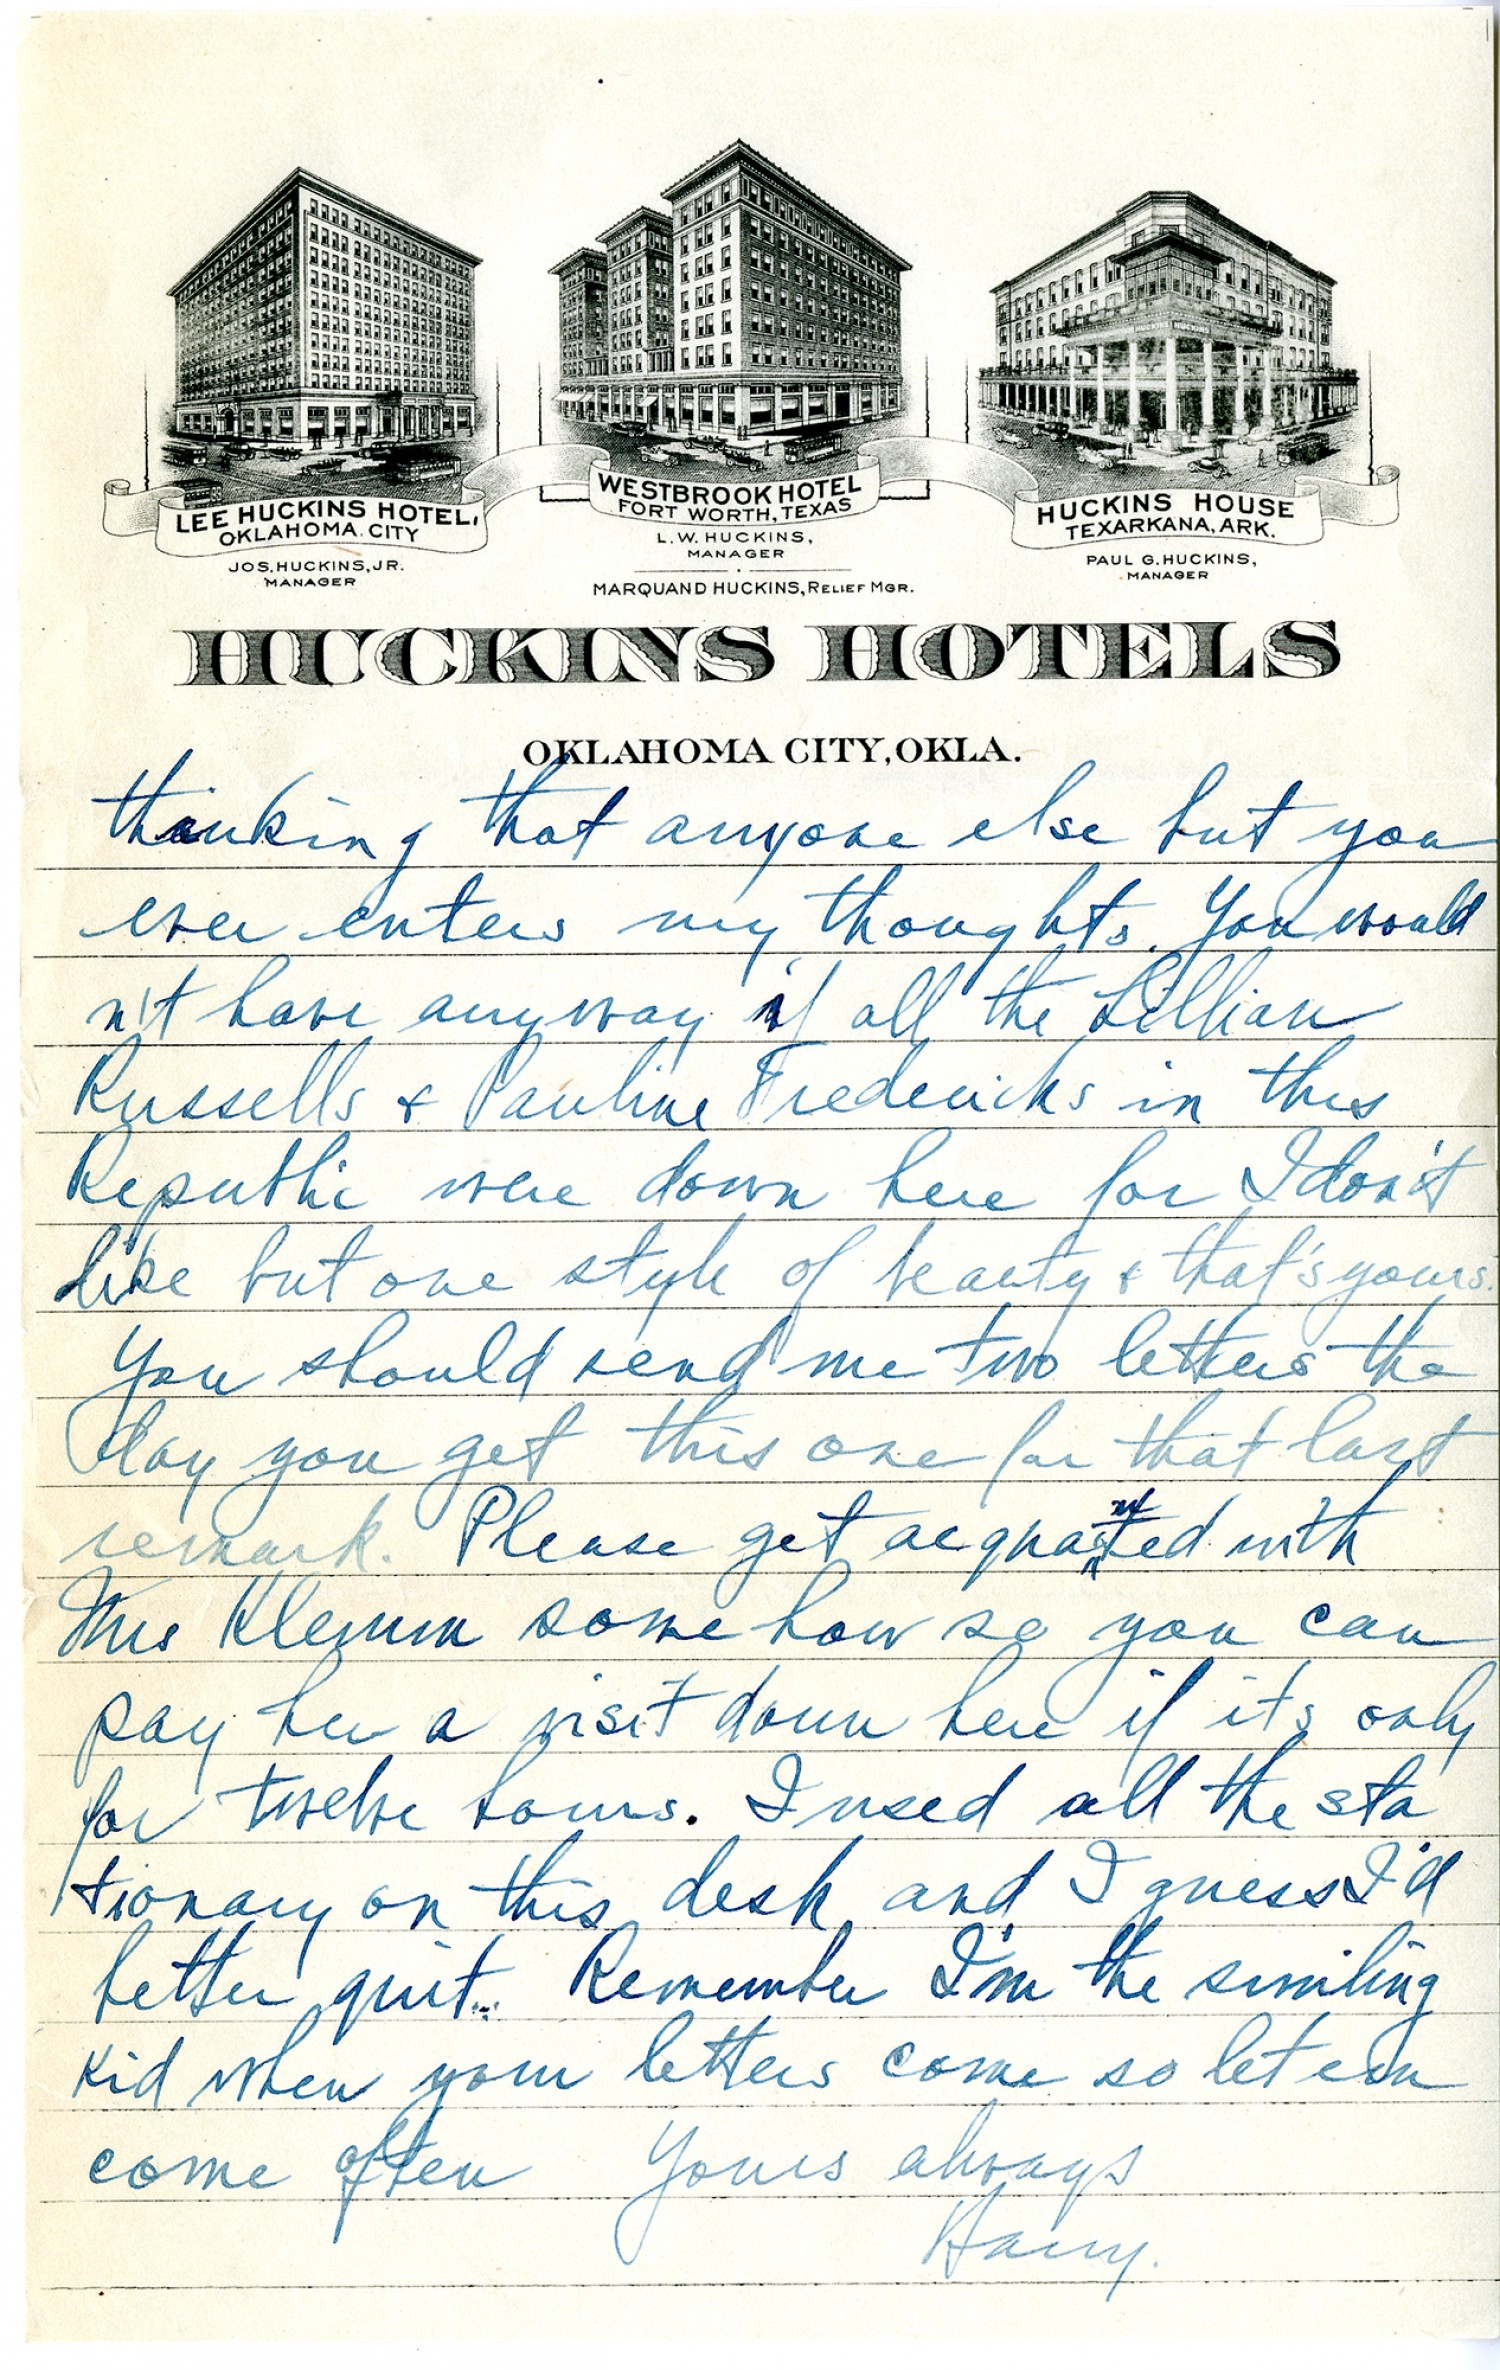 LEE HUCKINS HOTEL,
OKLAHOMA CITY
JOS. HUCKINS, JR.
MANAGER
WESTBROOK HOTEL
FORT WORTH, TEXAS
L. W. HUCKINS,
MANAGER
MARQUAND HUCKINS, RELIEF MGR.
HUCKINS HOUSE
TEXARKANA, ARK.
PAUL G. HUCKINS,
MANAGER
HUCKINS HOTELS
OKLAHOMA CITY, OKLA.
thinking that anyone else but you
ever enters my thoughts. You would
n't have anyway if all the Lillian
Russells & Pauline Fredericks in this
Republic were down here for I don't
like but one style of beauty & that's yours.
You should send me two letters the
day you get this one for that last
remark. Please get acquainted with
Mrs Klemm some how so you can
pay her a visit down here if its only
for twelve hours. I used all the sta
tionary on this desk and I guess I'd
better quit. Remember I'm the smiling
kid when your letters come so let em
come often Yours always
Harry.